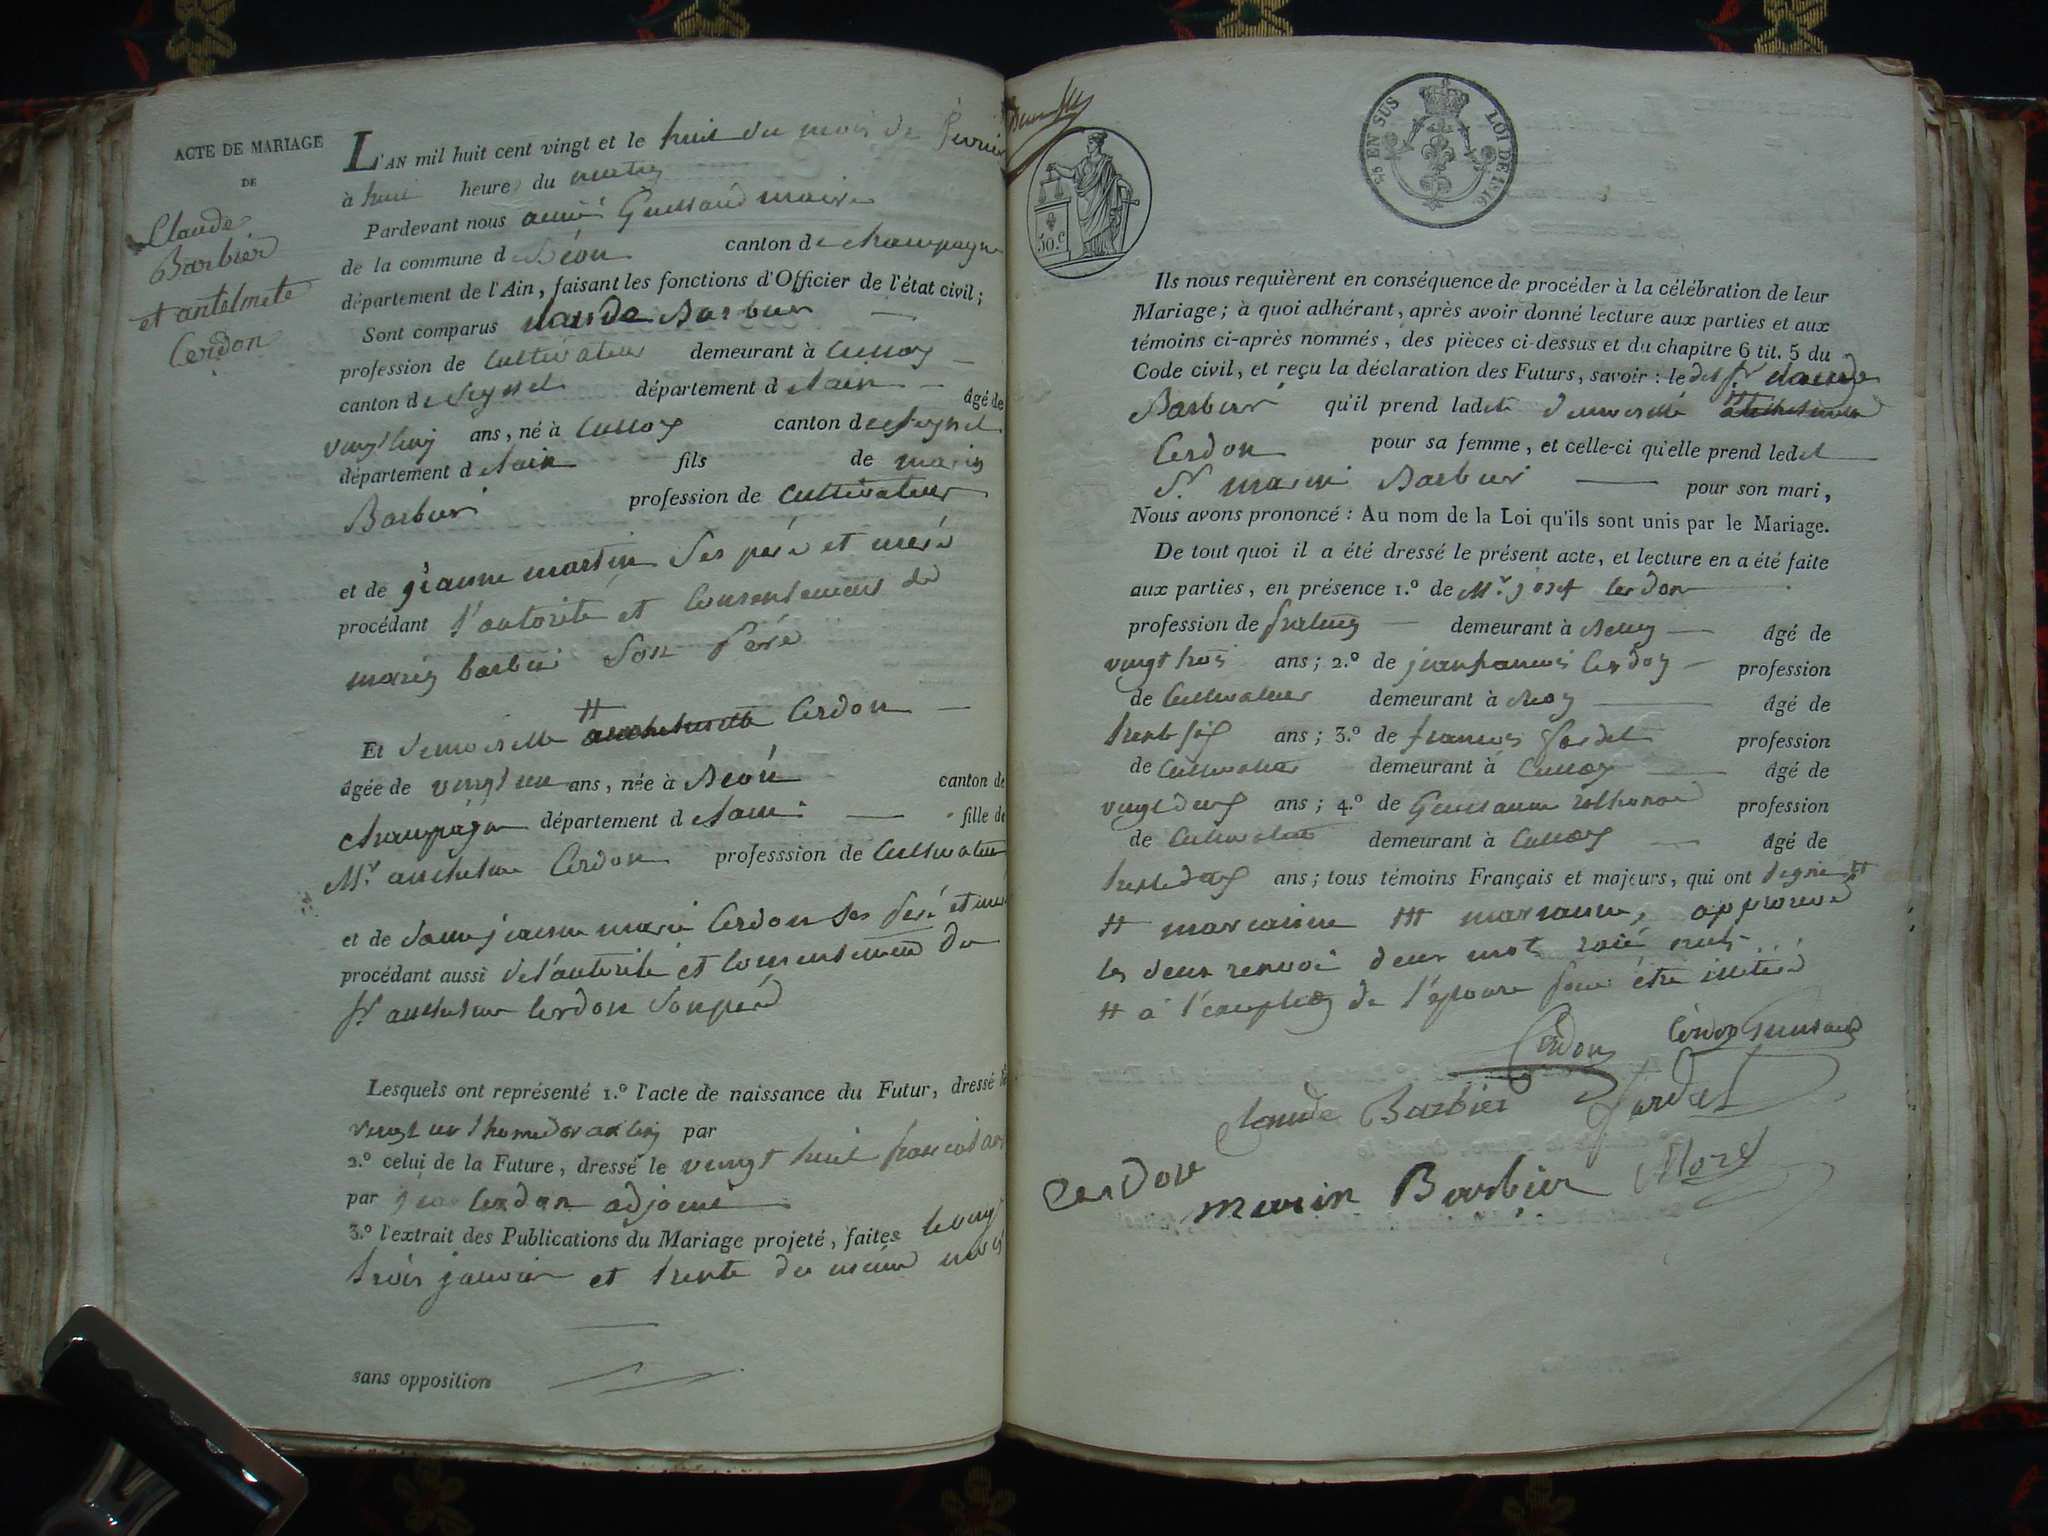 ACTE DE MARIAGE
DE
Claude
Barbier
et antelmete
Cerdon
L'AN mil huit cent vingt et le huit du mois de fevrier
à huit heures du matin
Pardevant nous maire
de la commune de Béon canton de champagne
département de l'Ain, faisant les fonctions d'Officier de l'état civil;
Sont comparus Claude Barbier
profession de Cultivateur demeurant à Culloz
canton de Seyssel département de l'ain âgé de
vingt cinq ans, né à Culloz canton de Seyssel
département de l'ain fils de marin
Barbier profession de Cultivateur
et de jeanne martin Ses père et mère
procédant l'autorité et Consentement de
marin barbier Son Père
Et demoiselle # Cerdon
âgée de ans, née à Béon canton de
champagne département de l'ain fille de
Mr. anthelme Cerdon professsion de Cultivateur
et de jeanne marie Cerdon Ses père et
procédant aussi de l'autorité et Consentement du
Sr. anthelme Cerdon Son père
Lesquels ont représenté 1.º l'acte de naissance du Futur, dressé le
vingt un thermidor an par
2.º celui de la Future, dressé le vingt huit
par Cerdon adjoint
3.º l'extrait des Publications du Mariage projeté, faites le vingt
trois janvier et trente du même mois
sans opposition
50.c
EN SUS LOI DE 1816
Ils nous requièrent en conséquence de procéder à la célébration de leur
Mariage; à quoi adhérant, après avoir donné lecture aux parties et aux
témoins ci-après nommés, des pièces ci-dessus et du chapitre 6 tit. 5 du
Code civil, et reçu la déclaration des Futurs, savoir : le dit Sr. Claude
Barbier qu'il prend ladite demoiselle #
Cerdon pour sa femme, et celle-ci qu'elle prend ledit
Sr. marin Barbier pour son mari,
Nous avons prononcé : Au nom de la Loi qu'ils sont unis par le Mariage.
De tout quoi il a été dressé le présent acte, et lecture en a été faite
aux parties, en présence 1.º de Mr. josef Cerdon
profession de demeurant à Belley âgé de
vingt trois ans; 2.º de jean francois Cerdon profession
de Cultivateur demeurant à âgé de
trente six ans; 3.º de francois Jordet profession
de Cultivateur demeurant à Culloz âgé de
vingt deux ans; 4.º de profession
de Cultivateur demeurant à Culloz âgé de
trente deux ans; tous témoins Français et majeurs, qui ont signé #
# marianne # marianne, approuvé
les deux renvoi deux mot raié nuls
# à l'exception de l'épouse pour être illitéré
Cerdon Cerdon
Claude Barbier Jardet
Cerdon marin Barbier